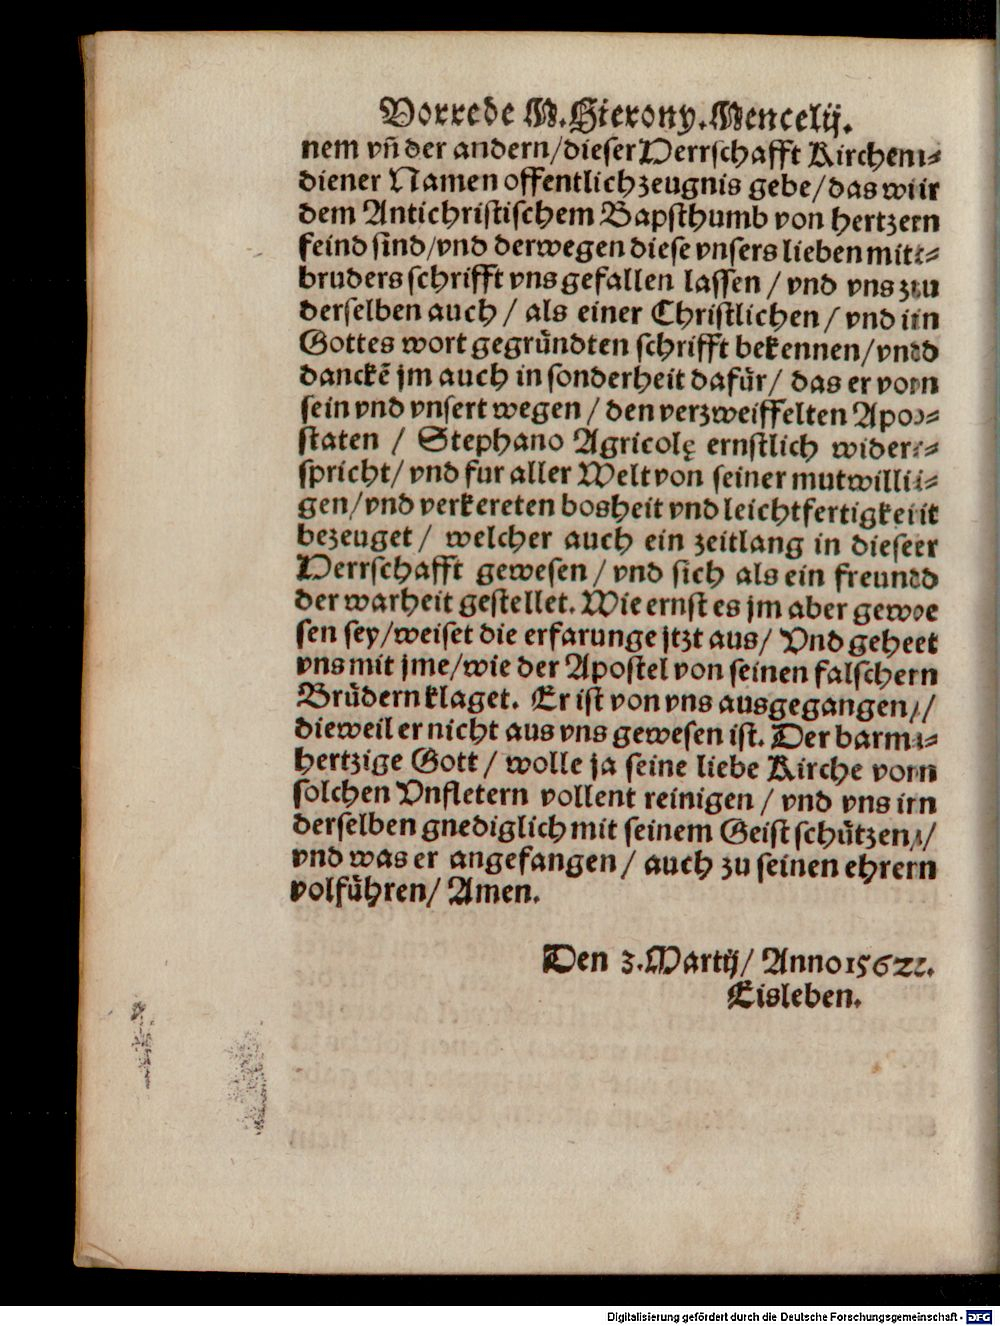 Vorrede M. Hierony. Mencelij.
nem vñ der andern/dieser Herrschafft Kirchen-
diener Namen offentlich zeugnis gebe/das wir
dem Antichristischem Bapsthumb von hertzen
feind sind/vnd derwegen diese vnsers lieben mit-
bruders schrifft vns gefallen lassen / vnd vns zu
derselben auch / als einer Christlichen / vnd in
Gottes wort gegründten schrifft bekennen/vnd
danckẽ jm auch in sonderheit dafür/ das er von
sein vnd vnsert wegen / den verzweiffelten Apo-
staten / Stephano Agricolę ernstlich wider-
spricht/ vnd fur aller Welt von seiner mutwilli-
gen/vnd verkereten bosheit vnd leichtfertigkeit
bezeuget / welcher auch ein zeitlang in dieser
Herrschafft gewesen / vnd sich als ein freund
der warheit gestellet. Wie ernst es jm aber gewe
sen sey/weiset die erfarunge jtzt aus/ Vnd gehet
vns mit jme/wie der Apostel von seinen falschen
Brüdern klaget. Er ist von vns ausgegangen/
dieweil er nicht aus vns gewesen ist. Der barm-
hertzige Gott / wolle ja seine liebe Kirche von
solchen Vnfletern vollent reinigen / vnd vns in
derselben gnediglich mit seinem Geist schützen/
vnd was er angefangen / auch zu seinen ehren
volführen/ Amen.
Den 3. Martij/ Anno 1562.
Eisleben.
Digitalisierung gefördert durch die Deutsche Forschungsgemeinschaft - DFG